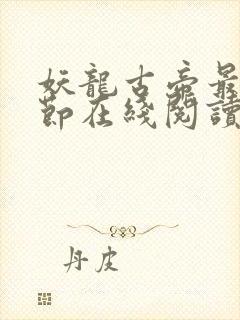 妖龍古帝最
節在綫閱讀
丹皮